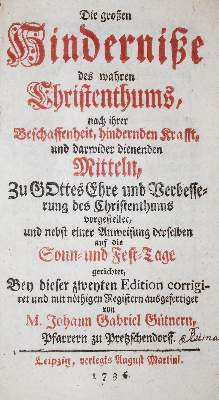 Die großen
Hinderniße
des wahren
Christenthums,
nach ihrer
Beschaffenheit, hindernden Krafft,
und darwider dienenden
Mitteln,
Zu GOttes Ehre und Verbesse-
rung des Christenthums
vorgestellet,
und nebst einer Anweisung derselben
auf die
Sonn- und Fest-Tage
gerichtet,
Bey dieser zweyten Edition corrigi-
ret und mit nöthigen Registern ausgefertiget
von
M. Johann Gabriel Gütnern,
Pfarrern zu Pretzschendorff.
Leipzig, verlegts August Martini.
1736.